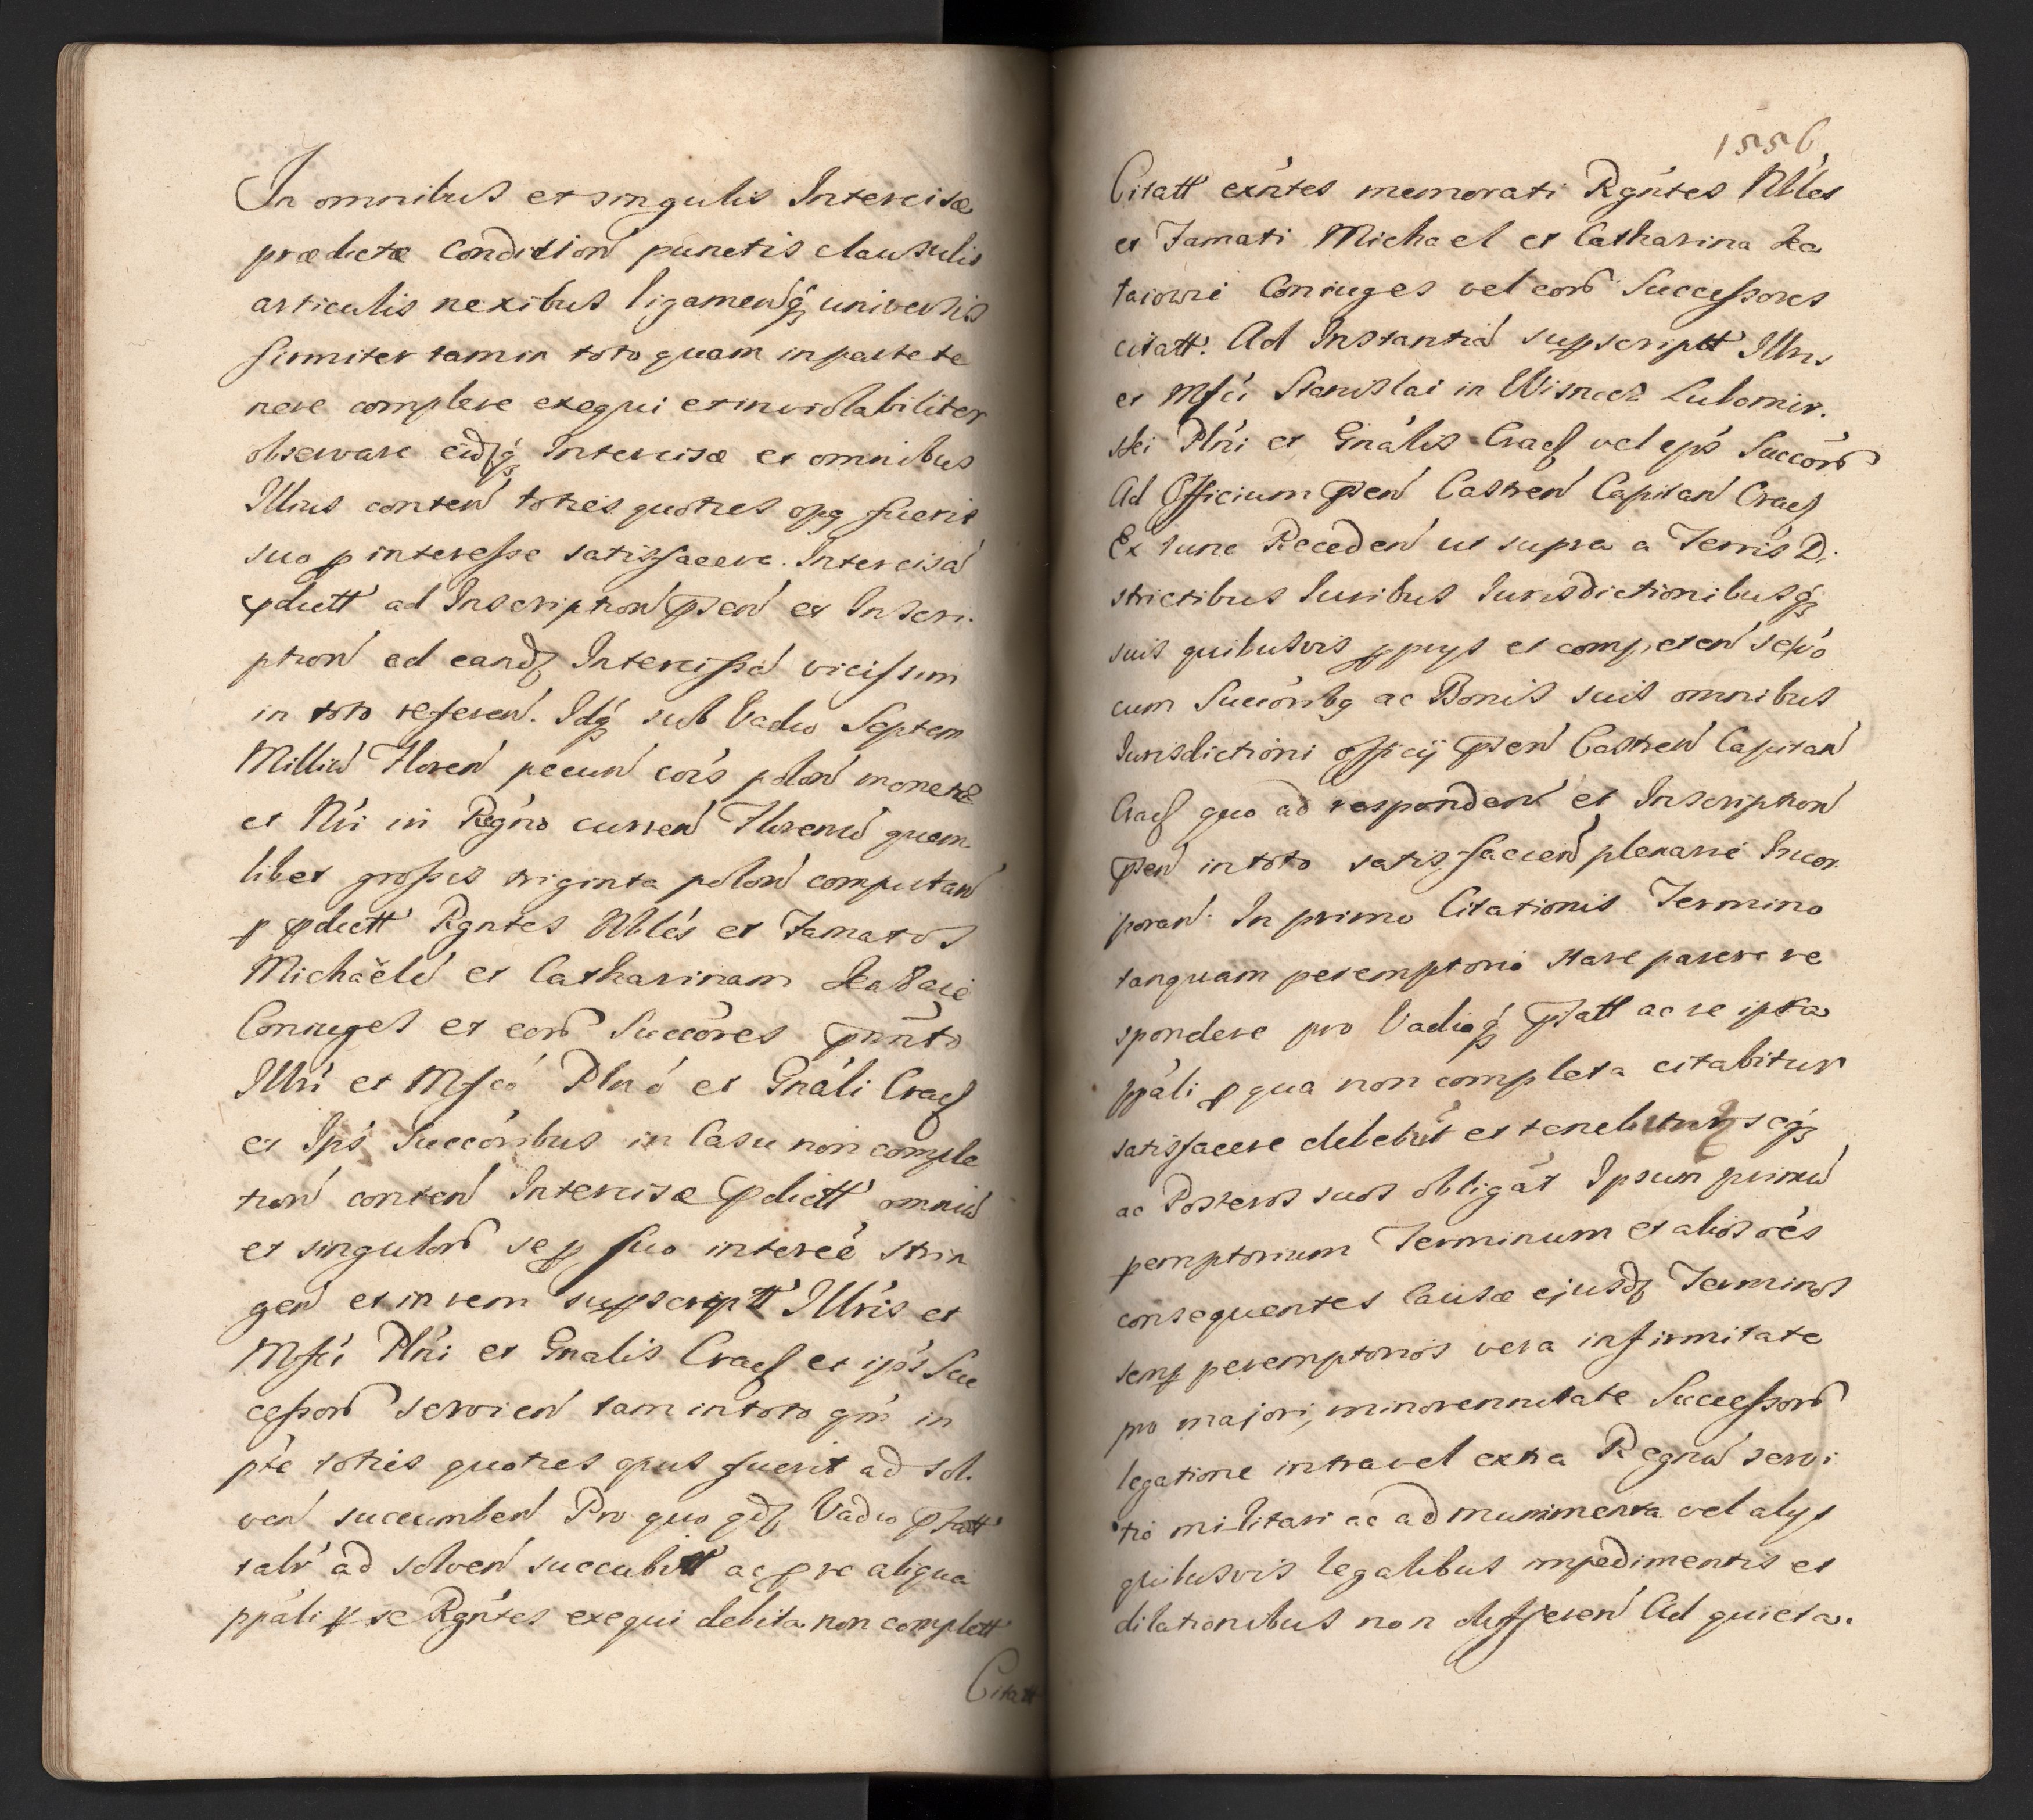 In omnibus et singulis Intercisæ
prædictæ Condition punctis clausulis
articulis nexibus ligamenq̃ universis
firmiter tam in toto quam in parte te
nere complere exequi et inviolabiliter
observare eidq̃ Intercisæ et omnibus
Illius conten toties quoties opg fuerit
suo p interesse satisfacere. Intercisa
pdictt ad Inscription psen et Inscri
ption ad eandz Intercissa vicissim
in toto referen. Idq̃ sub Vadio Septem
Milliu Floren pecun cois polon monetæ
et Nri in Regno curren Florenu quem
libet grossis triginta polon computan
p pdictt Rgntes Nbles et Famatos
Michaële et Catharinam
Coniuges et eoru Succores
Illri et Mfco Plno et Gnali Cracf
et Ips Succoribus in Casu non comple
tion conten Intercisæ pdictt omniu
et singuloru se p suo interee strin
gen et in rem suprscriptt Illris et
Mfci Plni et Gnalis Cracf et ips Suc
cessoru servien tam in toto qm in
pte toties quoties opus fuerit ad sol
ven succumben Pro quo qdz Vadio pfatt
talr ad solven succubitt ac p re aliqua
ppali p se Rgntes exequi debita non complett
Citatt
1556
Citatt exntes memorati Rgntes Nbles
et Famati Michael et Catharina Ka
taiowie Coniuges vel eoru Successores
citatt. Ad Instantia supscriptt Illris
et Mfci Stanislai in Wisnicz Lubomir
ski Plni et Gnalis Cracf vel ips Succoru
Ad Officium psen Castren Capitan Cracf
Ex tunc Receden ut supra a Terris Di
strictibus Iuribus Iurisdictionibusq̃
suis quibusvis pprys et competen seqo
cum Succoribg ac Bonis suis omnibus
Iurisdictioni officij psen Castren Capitan
Cracf quo ad responden et Inscription
psen in toto satisfacien plenarie Incor
poran. In primo Citationis Termino
tanquam peremptorio stare parere re
spondere pro Vadioq̃ pfatt ac re ipsa
ppali p qua non completa citabitur
satisfacere debebut et tenebuntur seq̃
ac Posteros suos obligat Ipsum primu
pemptorium Terminum et alios oes
consequentes Causæ ejusdz Terminos
semp peremptorios vera infirmitate
pro majori, minorennitate Successoru
legatione intra vel extra Regnu servi
tio militari ac ad munimenta vel alys
quibusvis legalibus impedimentis et
dilationibus non differen Ad quieta